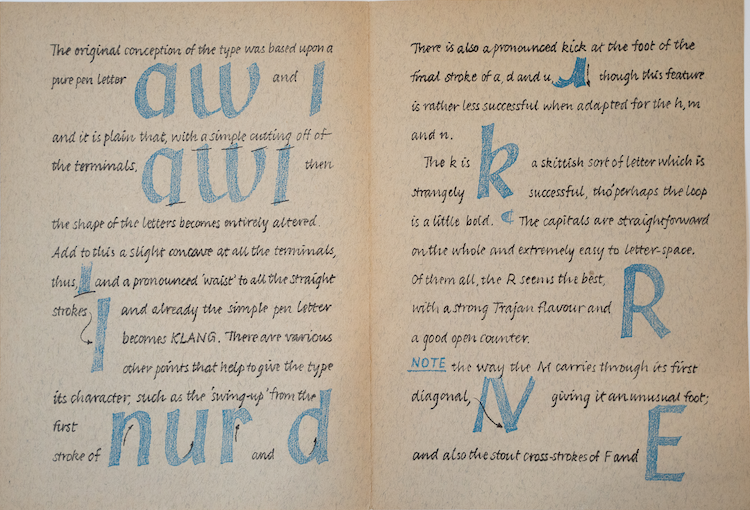 The original conception of the type was based upon a
pure pen letter a w and i
and it is plain that, with a simple cutting off of
the terminals, a w i then
the shape of the letters becomes entirely altered.
Add to this a slight concave at all the terminals,
thus, l and a pronounced 'waist' to all the straight
strokes l and already the simple pen letter
becomes KLANG. There are various
other points that help to give the type
its character, such as the 'swing-up' from the
first
stroke of n u r and d
There is also a pronounced kick at the foot of the
final stroke of a, d and u, though this feature
is rather less successful when adapted for the h, m
and n.
The k is k a skittish sort of letter which is
strangely successful, tho' perhaps the loop
is a little bold. The capitals are straightforward
on the whole and extremely easy to letter-space.
Of them all, the R seems the best,
with a strong Trajan flavour and R
a good open counter.
NOTE the way the M carries through its first
diagonal, giving it an unusual foot;
and also the stout cross-strokes of F and E